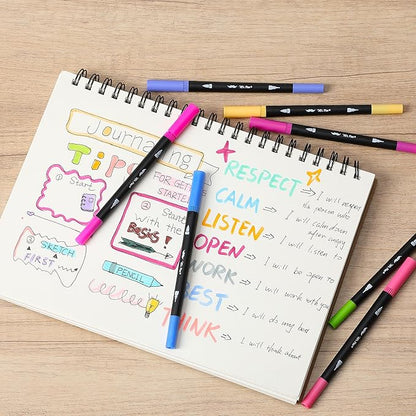 Journaling
Tips
FOR GETTING
STARTED
① Start
② Start
With the
BASICS!
③ SKETCH
FIRST
PENCIL
RESPECT → I will respect
CALM → I will calm down
LISTEN → I will listen to
OPEN → I will be open to
WORK → I will work with you
BEST → I will do my best
THINK → I will think about